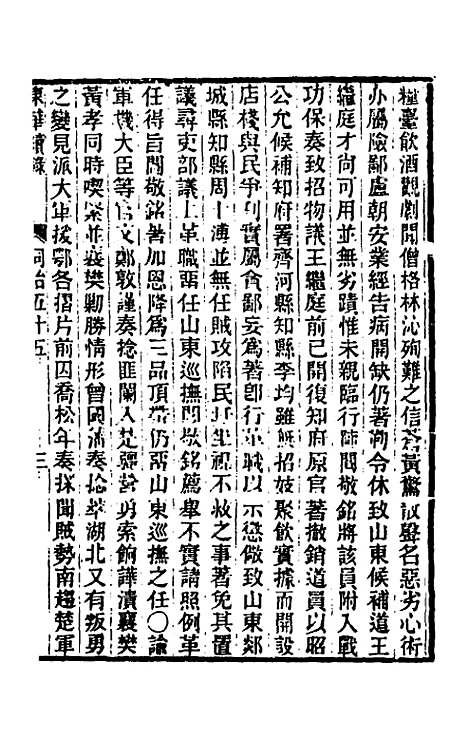 糧臺飲酒觀劇聞僧格林沁殉難之信答黃驚聲名惡劣心術
亦屬險鄙盧朝安業經告病開缺仍著勒令休致山東候補道王
繼庭才尚可用並無劣蹟惟未親臨行陣閻敬銘將該員附入戰
功保奏致招物議王繼庭前已開復知府原官著撤銷道員以昭
公允候補知府署齊河縣知縣李均雖無招妓聚飲實據而開設
店棧與民爭利實屬貪鄙妄為著即行革職以示懲儆致山東郯
城縣知縣周士溥並無任賊攻陷民圩坐視不救之事著免其置
議尋吏部議上革職留任山東巡撫閻敬銘薦舉不實請照例革
任得旨閻敬銘著加恩降為三品頂帶仍留山東巡撫之任〇諭
軍機大臣等官文鄭敦謹奏捻匪闌入楚疆曾勇索餉譁潰襄樊
黃孝同時喫緊並襄樊勦勝情形曾國藩奏捻萃湖北又有叛勇
之變見派大軍援鄂各摺片前因喬松年奏探聞賊勢南趨楚軍
東華續錄 同治五十五 三